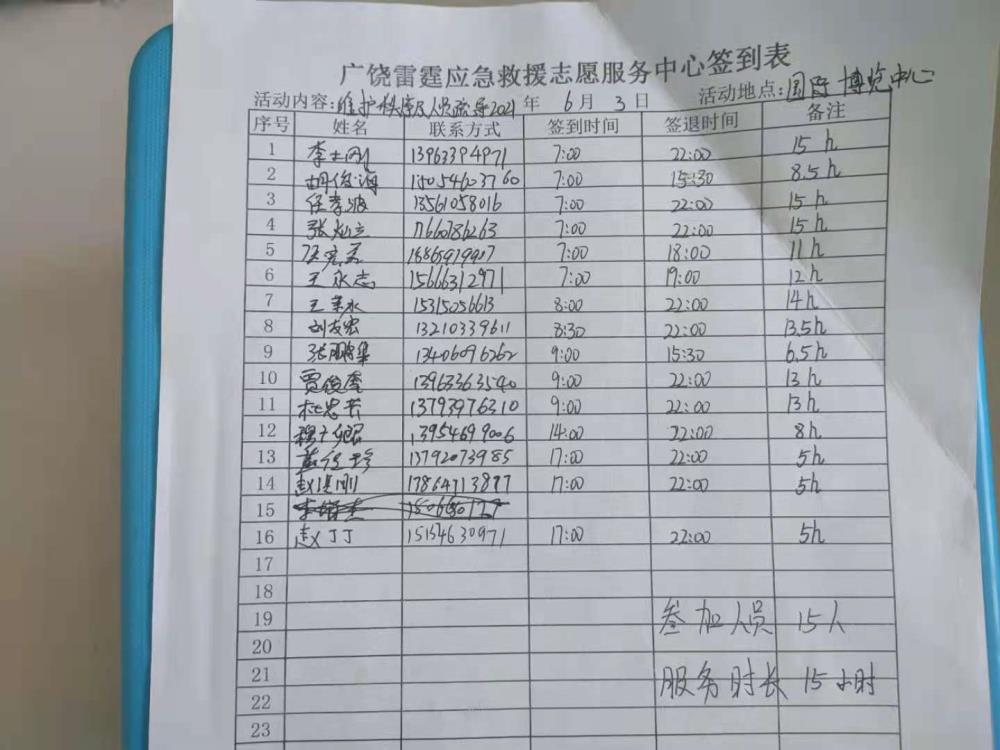 广饶雷霆应急救援志愿服务中心签到表
活动内容:维护秩序及人员疏导2021年 6月 3日 活动地点:国际博览中心
序号 姓名 联系方式 签到时间 签退时间 备注
1 李士刚 13963394971 7:00 22:00 15h
2 胡俊海 15054603760 7:00 15:30 8.5h
3 任孝波 13561058016 7:00 22:00 15h
4 张灿立 17660786263 7:00 22:00 15h
5 18865919907 7:00 18:00 11h
6 王永志 15666312971 7:00 19:00 12h
7 王素水 15315056613 8:00 22:00 14h
8 刘友宏 13210339611 8:30 22:00 13.5h
9 张鹏集 13406096262 9:00 15:30 6.5h
10 贾俊奎 13963363540 9:00 22:00 13h
11 杜忠芳 13793976310 9:00 22:00 13h
12 13954699006 14:00 22:00 8h
13 13792073985 17:00 22:00 5h
14 赵洪刚 17864713877 17:00 22:00 5h
15
16 赵丁丁 15154630971 17:00 22:00 5h
17
18
19 参加人员 15人
20
21 服务时长 15小时
22
23